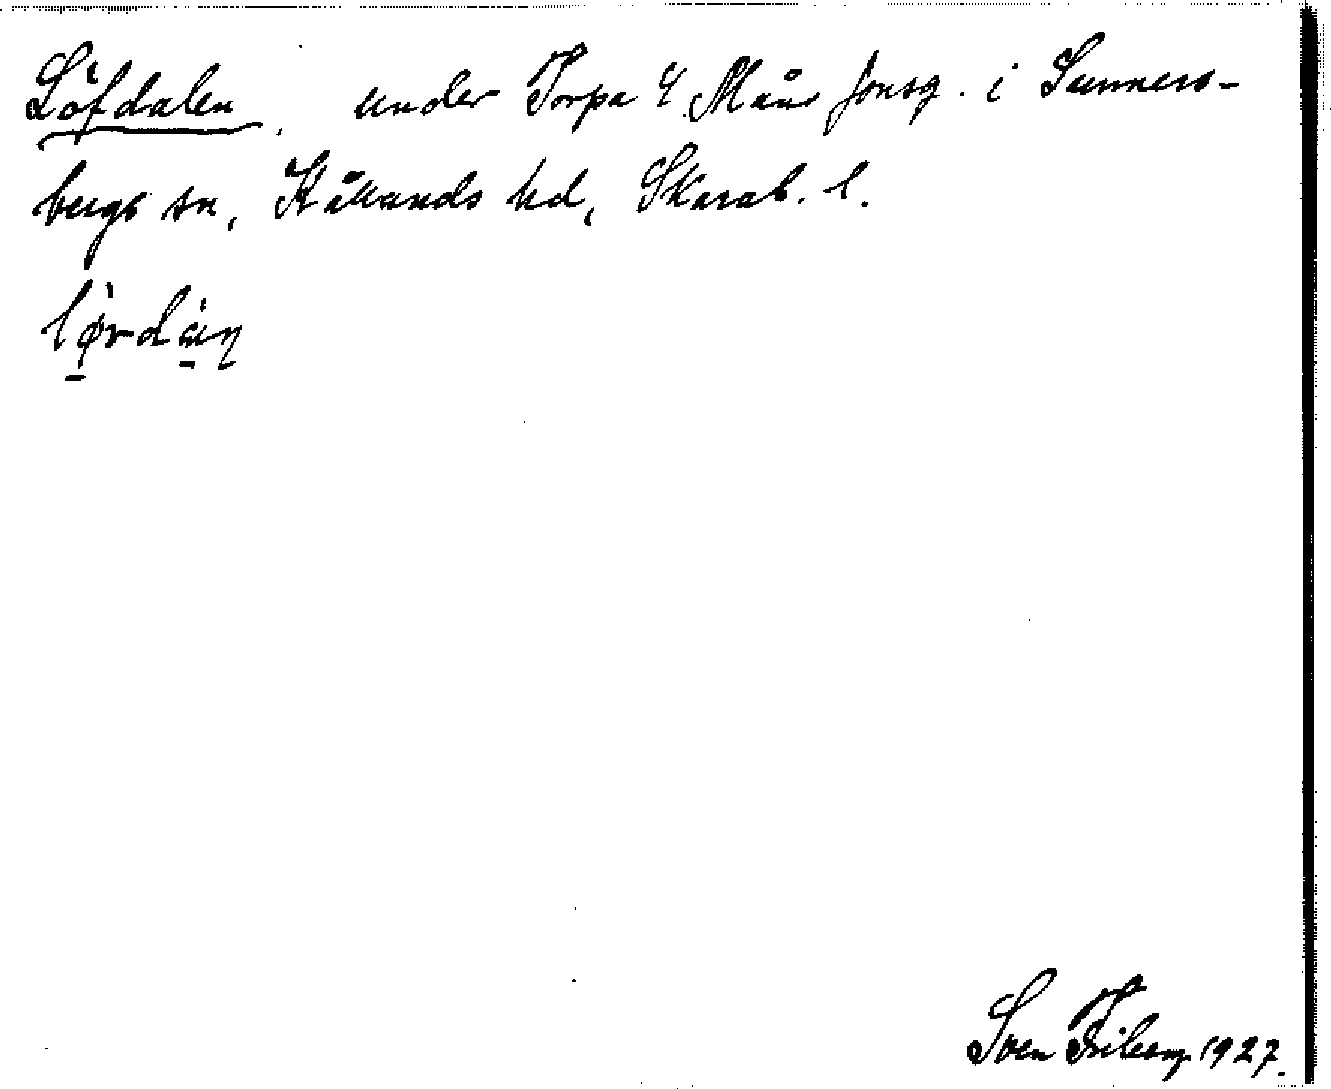 Löfdalen, under Torpa 4 Måns Jonsg. i Sunners-
bergs sn, Kållands hd, Skarab. l.
Sven Friberg 1927.